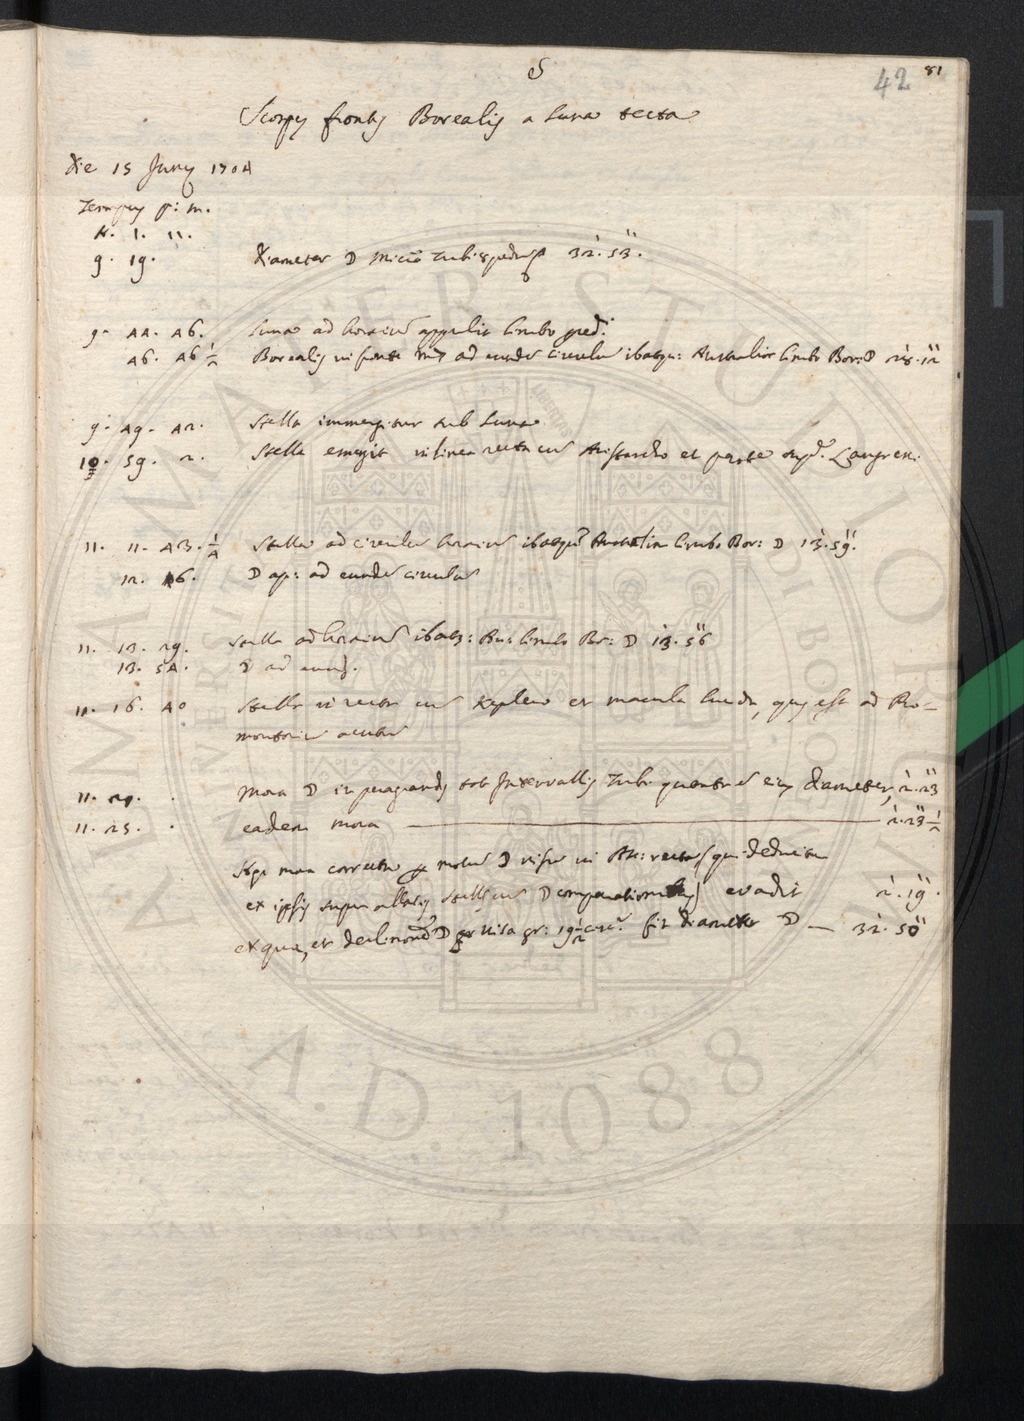 S
42 81
Scorpij frontis Borealis a Luna tecta
Die 15 Junij 1704
Tempus p: m.
H. 1. 11.
9. 19. Diameter ☽ Micro Tubi 8 pedum 32'. 53''.
9. 44. 46. Luna ad horarium appulit limbo præd.
46. 46 1/2 Borealis in fronte ♏ ad eundem circulum ibatque Australior limbo Bor: ☽ 28. 12
9. 49. 42. Stella immergitur sub Luna
10. 59. 2. Stella emergit in linea recta cum Aristarcho et parte Langren.
11. 11. 43. 1/4 Stella ad circulum horarium ibatque Australior limbo Bor: ☽ 13'. 59''.
12. 46. ☽ ap: ad eundem circulum
11. 13. 29. Stella ad horarium ibatq: Au: limbo Bor: ☽ 13'. 56''
13. 54. ☽ ad eund.
11. 16. 40 Stella in recta cum Keplero et macula lucida, quæ est ad Pro-
montorium acutum
11. 21. . Mora ☽ in peragrandis tot Intervallis Tubi quantus est eius diameter, 2'. 23''
11. 25. . eadem mora 2'. 23'' 1/2
mora correcta motum ☽ in AR: recta (qui deducitur
ex ipsis supra allatis stellæ cum ☽ comparationibus) evadit 2'. 19''.
ex qua, et declinatione ☽ visa gr: 19 1/2 circ. fit diameter ☽ — 32'. 50''
ALMA MATER STUDIORUM
UNIVERSITÀ DI BOLOGNA
A.D. 1088